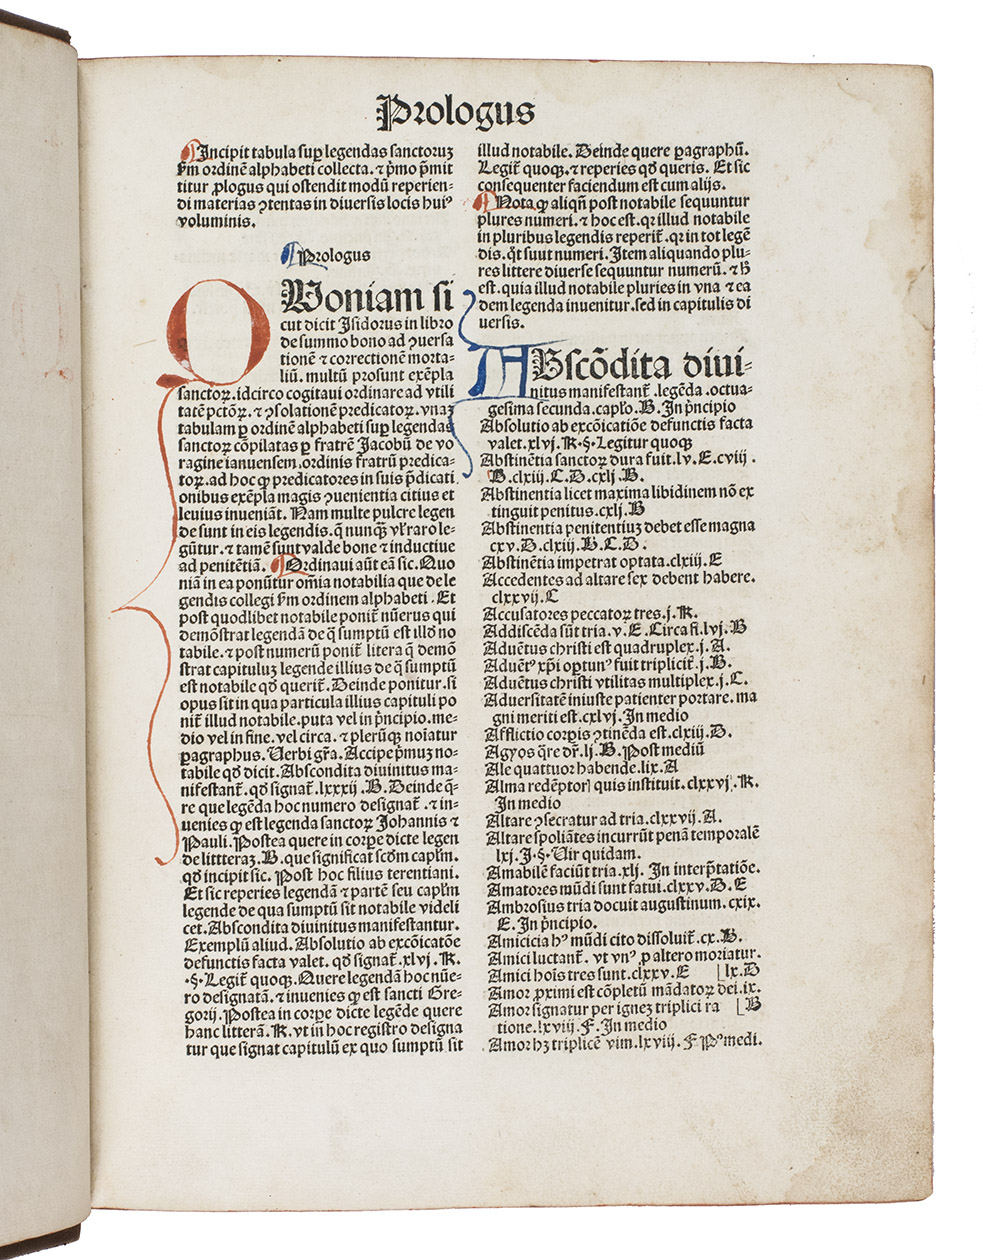 Prologus
Incipit tabula suꝑ legendas sanctoruꝫ
ẜm ordinē alphabeti collecta. ⁊ p̃mo p̃mit
titur ꝓlogus qui ostendit modū reperien⸗
di materias ꝯtentas in diuersis locis huiꝰ
voluminis.
Prologus
QUoniam si
cut dicit Isidorus in libro
de summo bono ad ꝯuersa
tionē ⁊ correctionē morta⸗
liū. multū prosunt exẽpla
sanctoꝝ. idcirco cogitaui ordinare ad vtili
tatē pctõꝝ. ⁊ ꝯsolationē predicatoꝝ. vnaꝫ
tabulam ꝑ ordinē alphabeti suꝑ legendas
sanctoꝝ cõpilatas ꝑ fratrē Jacobū de vo
ragine ianuensem. ordinis fratrū predica⸗
toꝝ. ad hoc ꝙ predicatores in suis p̃dicati
onibus exẽpla magis ꝯuenientia citius et
leuius inueniãt. Nam multe pulcre legen
de sunt in eis legendis. q̃ nunq̃ꝫ vl̃ raro le⸗
gũtur. ⁊ tamē sunt valde bone ⁊ inductiue
ad penitẽtiã. Ordinaui aũt eã sic. Quo
niã in ea ponũtur om̃ia notabilia que de le
gendis collegi ẜm ordinem alphabeti. Et
post quodlibet notabile ponit̃ nũerus qui
demõstrat legendã de q̃ sumptũ est illđ no
tabile. ⁊ post numerũ ponit̃ litera q̃ demõ
strat capituluꝫ legende illius de q̃ sumptũ
est notabile qđ querit̃. Deinde ponitur. si
opus sit in qua particula illius capituli po
nit̃ illud notabile. puta vel in p̃ncipio. me⸗
dio vel in fine. vel circa. ⁊ plerũqꝫ noĩatur
ꝑagraphus. Uerbi gr̃a. Accipe p̃muꝫ no⸗
tabile qđ dicit. Abscondita diuinitus ma⸗
nifestant̃. qđ signat̃. lxxxij. B. Deinde q̃⸗
re que legẽda hoc numero designat̃. ⁊ in⸗
uenies ꝙ est legenda sanctoꝝ Johannis ⁊
Pauli. Postea quere in corꝑe dicte legen
de littteraꝫ. B. que significat scđm capl̃m.
qđ incipit sic. Post hoc filius terentiani.
Et sic reperies legendã ⁊ partē seu capl̃m
legende de qua sumptũ sit notabile videli
cet. Abscondita diuinitus manifestantur.
Exemplũ aliud. Absolutio ab excõicatõe
defunctis facta valet. qđ signat̃. xlvj. K.
.§. Legit̃ quoqꝫ. Quere legendã hoc nũe⸗
ro designatã. ⁊ inuenies ꝙ est sancti Gre⸗
gorij. Postea in corꝑe dicte legẽde quere
hanc litterã. K. vt in hoc registro designa
tur que signat capitulũ ex quo sumptũ sit
illud notabile. Deinde quere ꝑagraphũ.
Legit̃ quoqꝫ. ⁊ reperies qđ queris. Et sic
consequenter faciendum est cum alijs.
Nota ꝙ aliqñ post notabile sequuntur
plures numeri. ⁊ hoc est. qꝛ illud notabile
in pluribus legendis reperit̃. qꝛ in tot legẽ
dis. q̃t sunt numeri. Item aliquando plu⸗
res littere diuerse sequuntur numerũ. ⁊ ħ
est. quia illud notabile pluries in vna ⁊ ea
dem legenda inuenitur. sed in capitulis di
uersis.
ABscõdita diui⸗
nitus manifestant̃. legẽda. octua⸗
gesima secunda. capl̃o. B. In p̃ncipio
Absolutio ab excõicatiõe defunctis facta
valet. xlvj. K. §. Legitur quoqꝫ
Abstinẽtia sanctoꝝ dura fuit. lv. E. cviij.
B. clxiij. C. D. cxlj. B.
Abstinentia licet maxima libidinem nõ ex
tinguit penitus. cxlj. B
Abstinentia penitentiuꝫ debet esse magna
cxv. D. clxiij. B. C. D.
Abstinẽtia impetrat optata. clxiij. E
Accedentes ad altare sex debent habere.
clxxvij. C
Accusatores peccatoꝝ tres. j. K.
Addiscẽda sũt tria. v. E. Circa fi. lvj. B
Aduẽtus christi est quadruplex. j. A.
Aduẽtꝰ xp̃i oꝑtunꝰ fuit triplicit̃. j. B.
Aduẽtus christi vtilitas multiplex. j. C.
Aduersitatē iniuste patienter portare. ma
gni meriti est. cxlvj. In medio
Afflictio corꝑis ꝯtinẽda est. clxiij. D.
Agyos q̃re dr̃. lj. B. Post mediũ
Ale quattuor habende. lix. A
Alma redẽptoꝛ quis instituit. clxxvj. K.
In medio
Altare ꝯsecratur ad tria. clxxvij. A.
Altare spoliãtes incurrũt penã temporalē
lxj. I. §. Uir quidam.
Amabilē faciũt tria. xlj. In interp̃tatiõe.
Amatores mũdi sunt fatui. clxxv. D. E
Ambrosius tria docuit augustinum. cxix.
E. In p̃ncipio.
Amicicia hꝰ mũdi cito dissoluit̃. cx. B.
Amici luctant̃. vt vnꝰ ꝓ altero moriatur.
Amici hoĩs tres sunt. clxxv. E [lx. D
Amor ꝓximi est cõpletũ mãdatoꝝ dei. ix.
Amor signatur per igneꝫ triplici ra [B
tione. lxviij. F. In medio
Amor hꝫ triplicē vim. lxviij. F Pꝰ medi.